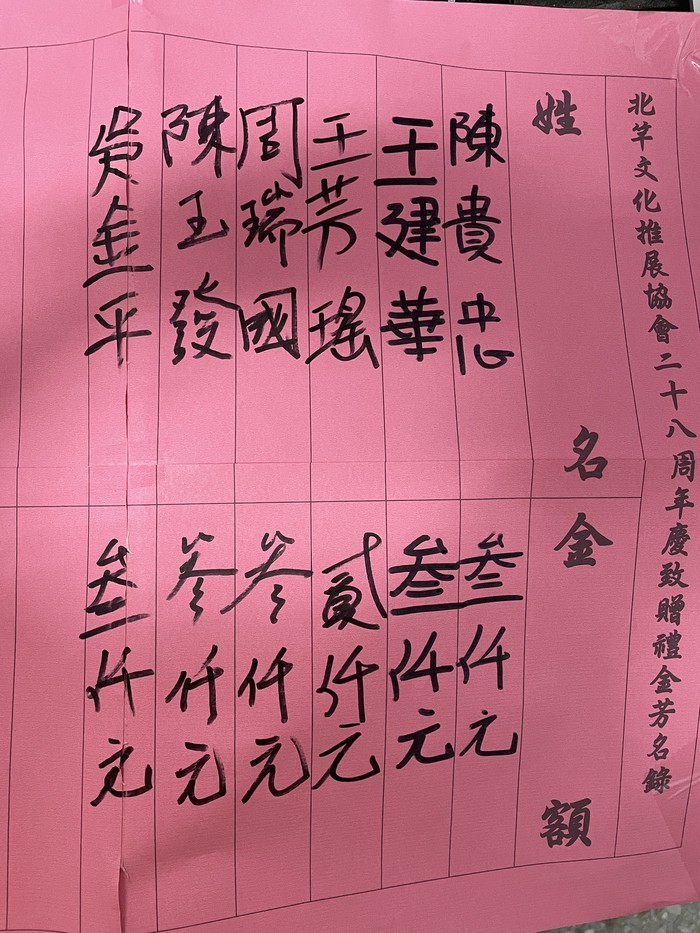 北竿文化推展協會二十八周年慶致贈禮金芳名錄
姓名 金額
陳貴忠 叁仟元
王建華 叁仟元
王芳瑤 貳仟元
周瑞國 参仟元
陳玉發 参仟元
吳金平 叁仟元